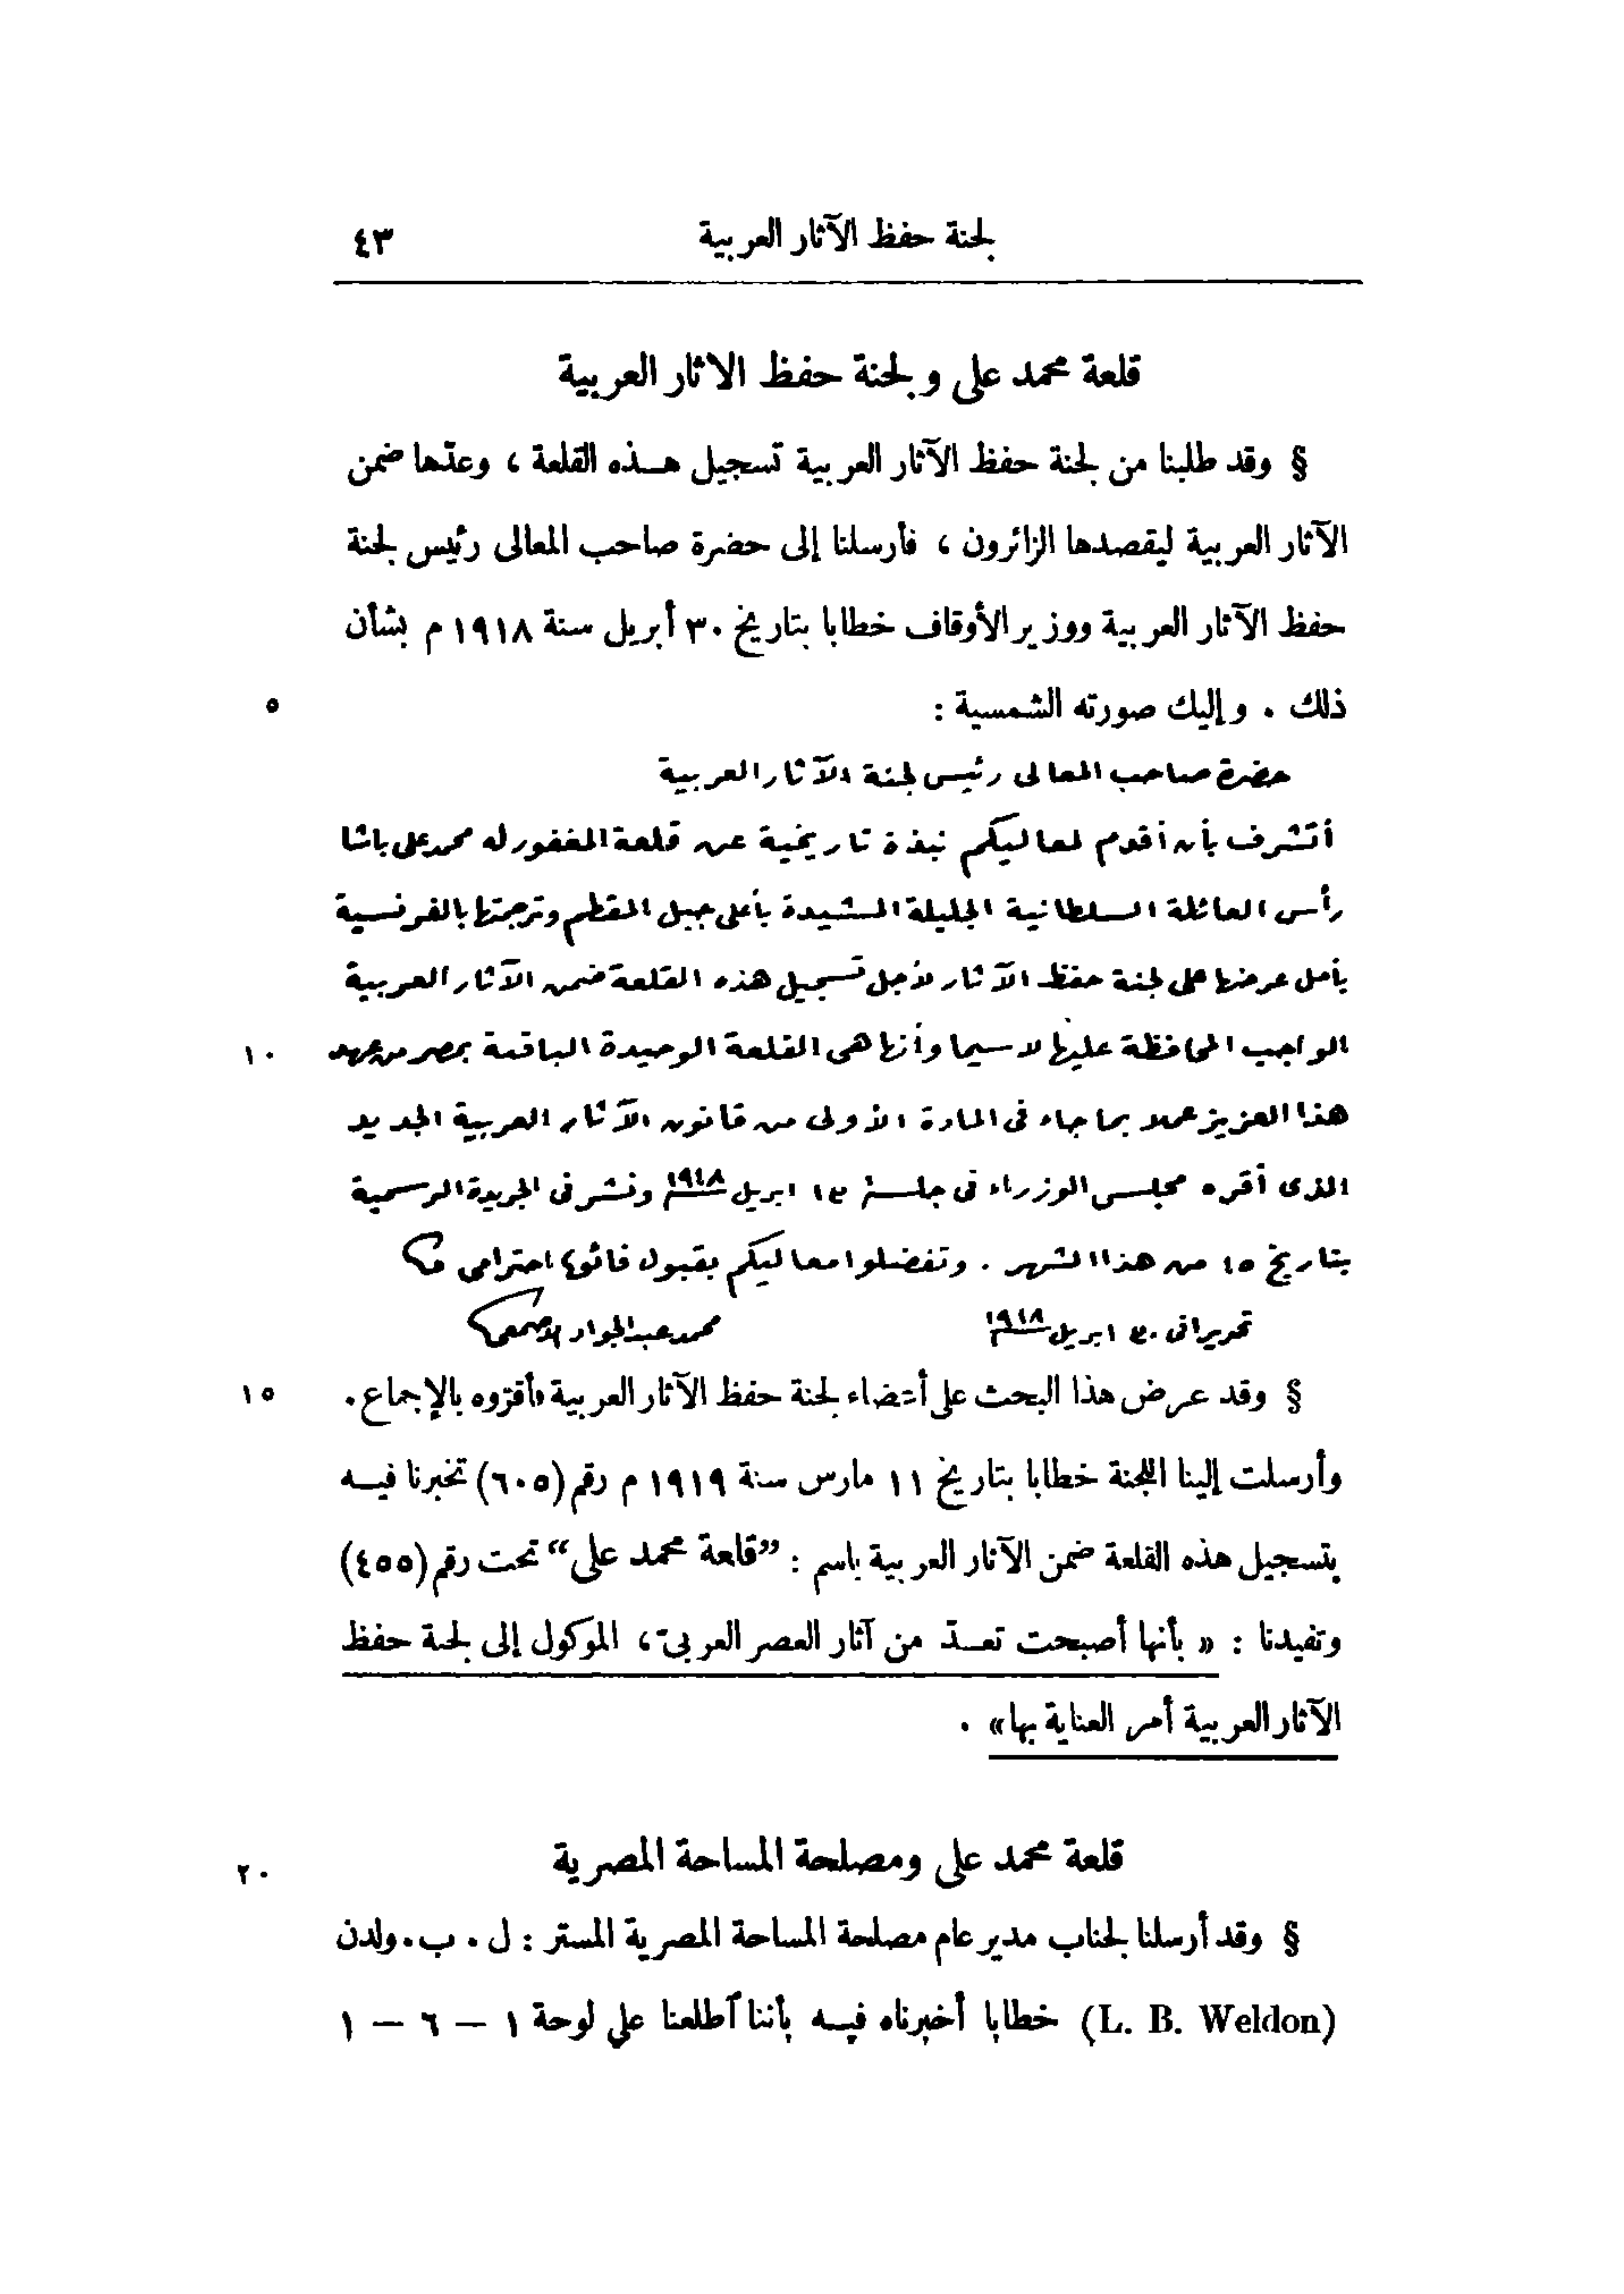 لجنة حفظ الآثار العربية ٤٣
قلعة محمد على ولجنة حفظ الاثار العربية
§ وقد طلبنا من لجنة حفظ الآثار العربية تسجيل هـذه القلعة ، وعدّها ضمن
الآثار العربية ليقصدها الزائرون ، فأرسلنا إلى حضرة صاحب المعالى رئيس لجنة
حفظ الآثار العربية ووزير الأوقاف خطابا بتاريخ ٣٠ أبريل سنة ١٩١٨ م بشأن
ذلك . وإليك صورته الشمسية : ٥
حضرة صاحب المعالى رئيس لجنة الآثار العربية
أتشرف بأن أقدم لمعاليكم نبذة تاريخية عن قلعة المغفور له محمد على باشا
رأس العائلة السلطانية الجليلة المشيدة بأعلى جبل المقطم وترجمتها بالفرنسية
بأمل عرضها على لجنة حفظ الآثار لأجل تسجيل هذه القلعة ضمن الآثار العربية
الواجب المحافظة عليها لاسيما وأنها هى القلعة الوحيدة الباقية بمصر من عهد ١٠
هذا العزيز عملا بما جاء فى المادة الأولى من قانون الآثار العربية الجديد
الذى أقره مجلس الوزراء فى جلسة ١٣ ابريل ١٩١٨ ونشر فى الجريدة الرسمية
بتاريخ ١٥ من هذا الشهر . وتفضلوا معاليكم بقبول فائق احترامى
تحريرا فى ٣٠ ابريل ١٩١٨ محمد عبد الجواد الأصمعى
§ وقد عرض هذا البحث على أعضاء لجنة حفظ الآثار العربية فأقرّوه بالإجماع . ١٥
وأرسلت إلينا اللجنة خطابا بتاريخ ١١ مارس سنة ١٩١٩ م رقم (٦٠٥) تخبرنا فيـه
بتسجيل هذه القلعة ضمن الآثار العربية باسم : ”قلعة محمد على“ تحت رقم (٤٥٥)
وتفيدنا : « بأنها أصبحت تعـدّ من آثار العصر العربىّ ، الموكول إلى لجنة حفظ
الآثار العربية أمر العناية بها» .
قلعة محمد على ومصلحة المساحة المصرية ٢٠
§ وقد أرسلنا لجناب مدير عام مصلحة المساحة المصرية المستر : ل . ب . ولدن
(L. B. Weldon) خطابا أخبرناه فيـه بأننا آطلعنا على لوحة ١ — ٦ — ١